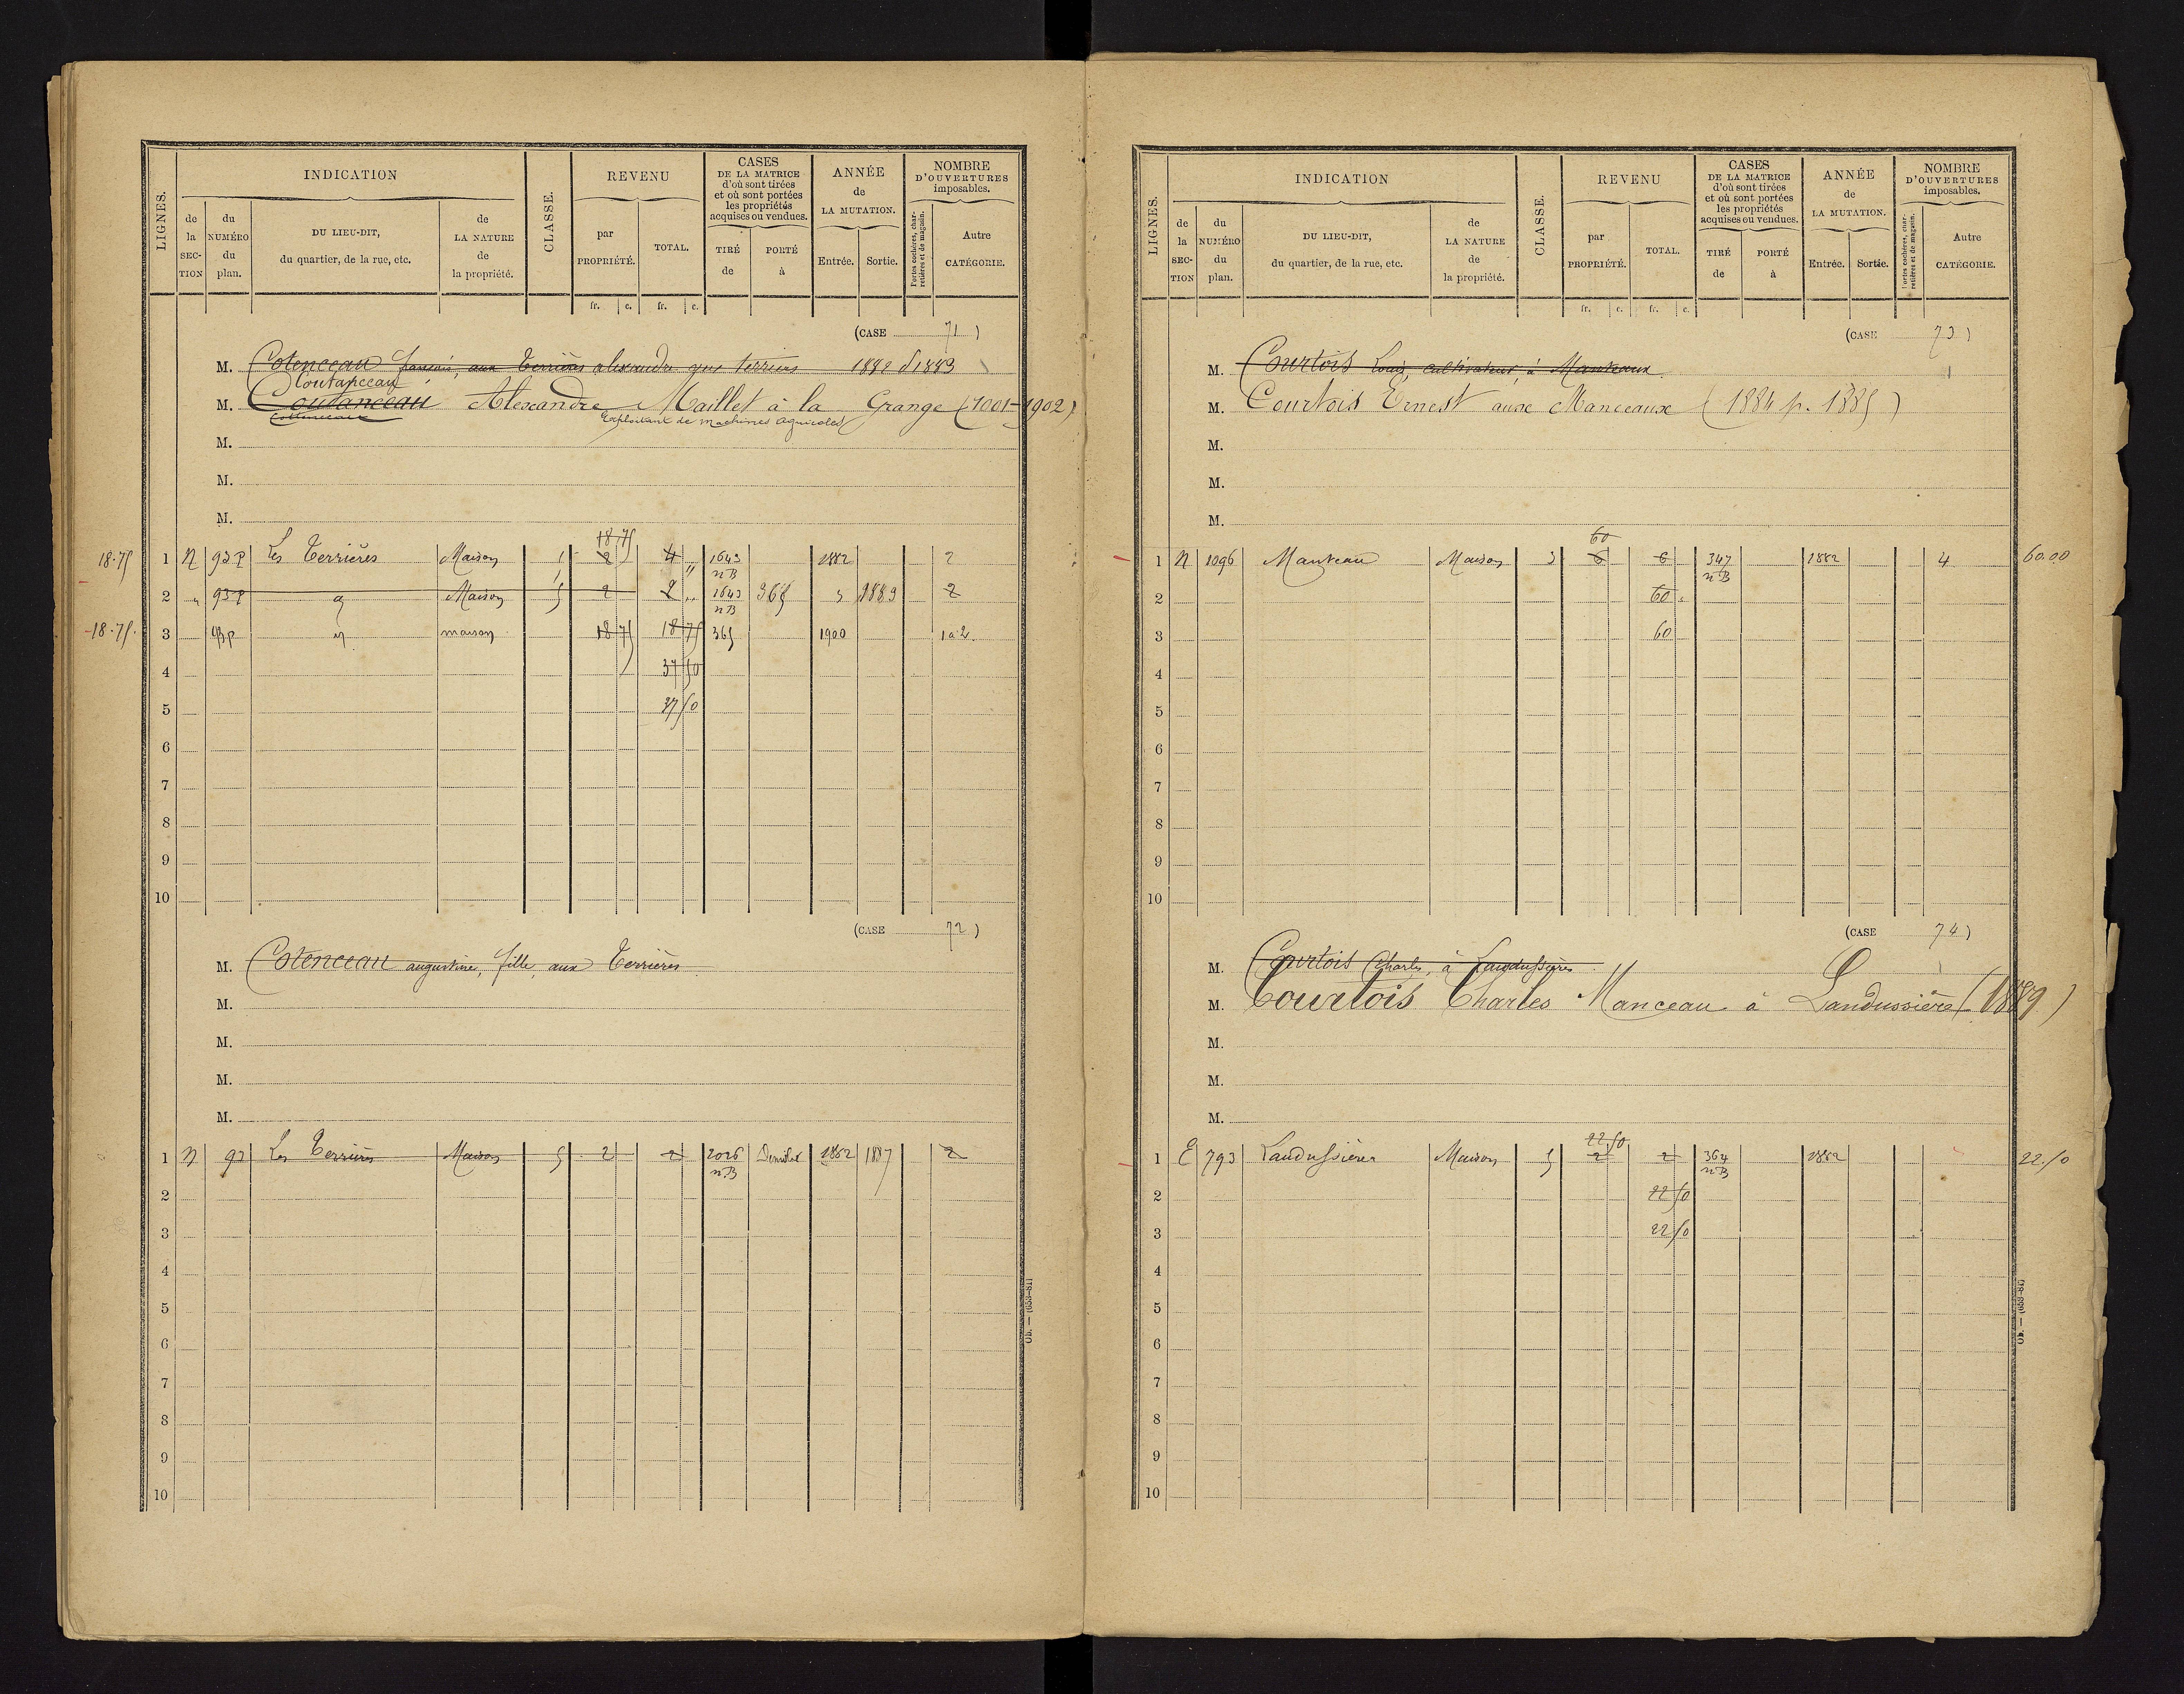 LIGNES.
INDICATION
de la SECTION
du NUMÉRO du plan.
DU LIEU-DIT, du quartier, de la rue, etc.
de LA NATURE de la propriété.
CLASSE.
REVENU
par PROPRIÉTÉ.
TOTAL.
CASES DE LA MATRICE d'où sont tirées et où sont portées les propriétés acquises ou vendues.
TIRÉ de
PORTÉ à
ANNÉE de LA MUTATION.
Entrée.
Sortie.
NOMBRE D'OUVERTURES imposables.
Portes cochères, charretières et de magasin.
Autre CATÉGORIE.
fr. c. fr. c.
(CASE 71)
M. Cotenceau aux Terrières alexandre 1882 1883
Coutanceau
M. Coutanceau Alexandre Maillet à la Grange (1901-1902)
Exploitant de machines agricoles
M.
M.
M.
18.75
18.75 1 N 93P Les Terrières Maison 2 4 " 1643 nB 1882 2
2 " 93P Maison 5 2 2 " 1643 nB 365 1883 2
18.75 3 93p maison 18 75 18 75 365 1900 1a2.
4 37 50
5 37 50
6
7
8
9
10
(CASE 72)
M. Cotenceau augustine, fille, aux Terrières
M.
M.
M.
M.
1 N 93 Les Terrières Maison 5 2 2 2026 nB 1882 1887 2
2
3
4
5
6
7
8
9
10
Ob. — (653-81)
LIGNES.
INDICATION
de la SECTION
du NUMÉRO du plan.
DU LIEU-DIT, du quartier, de la rue, etc.
de LA NATURE de la propriété.
CLASSE.
REVENU
par PROPRIÉTÉ.
TOTAL.
CASES DE LA MATRICE d'où sont tirées et où sont portées les propriétés acquises ou vendues.
TIRÉ de
PORTÉ à
ANNÉE de LA MUTATION.
Entrée.
Sortie.
NOMBRE D'OUVERTURES imposables.
Portes cochères, charretières et de magasin.
Autre CATÉGORIE.
fr. c. fr. c.
(CASE 73)
M. Courtois Louis, cultivateur, à Manteaux
M. Courtois Ernest aux Manceaux (1884 p. 1885)
M.
M.
M.
60
1 N 1096 Manteau Maison 3 6 6 347 nB 1882 4 60.00
2 60
3 60
4
5
6
7
8
9
10
(CASE 74)
M. Courtois Charles, à Landussières
M. Courtois Charles Manceau à Landussière (1889)
M.
M.
M.
22 50
1 E 793 Landussières Maison 5 2 2 364 nB 1882 22.50
2 22 50
3 22 50
4
5
6
7
8
9
10
Ob. — (653-81)